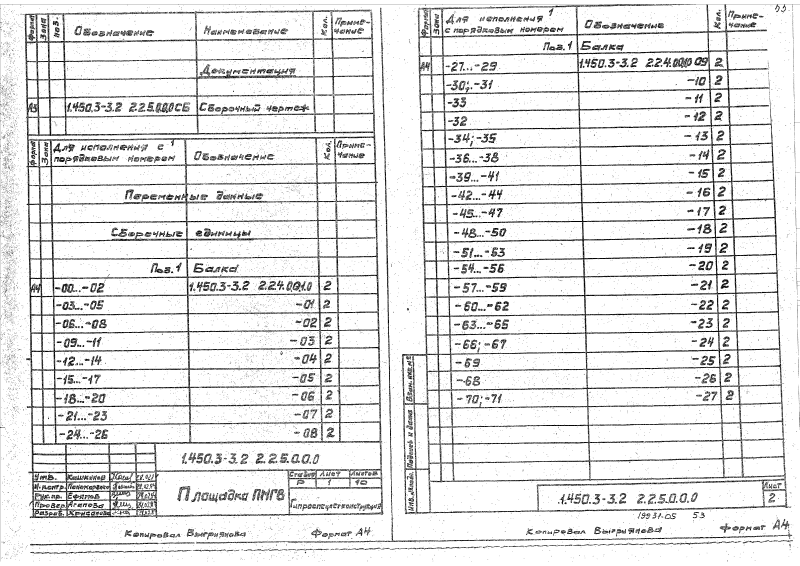 Формат Зона Поз. Обозначение Наименование Кол. Приме-чание
Документация
А3 1.450.3-3.2 2.2.5.0.0.0 СБ Сборочный чертеж
Формат Зона Для исполнения с порядковым номером 1 Обозначение Кол. Приме-чание
Переменные данные
Сборочные единицы
Поз. 1 Балка
А4 -00...-02 1.450.3-3.2 2.2.4.0.0.1.0 2
-03...-05 -01 2
-06...-08 -02 2
-09...-11 -03 2
-12...-14 -04 2
-15...-17 -05 2
-18...-20 -06 2
-21...-23 -07 2
-24...-26 -08 2
1.450.3-3.2 2.2.5.0.0.0
Утв.
Н.контр. Пономаренко
Рук.пр. Ефитов
Провер. Агапова
Разраб. Хрисанова
Площадка ПМГВ
Стадия Лист Листов
Р 1 10
Гипроспецлегконструкция
Копировал Выгриянова Формат А4
53
Формат Зона Для исполнения с порядковым номером 1 Обозначение Кол. Приме-чание
Поз. 1 Балка
А4 -27...-29 1.450.3-3.2 2.2.4.0.0.1.0 09 2
-30;-31 -10 2
-33 -11 2
-32 -12 2
-34;-35 -13 2
-36...-38 -14 2
-39...-41 -15 2
-42...-44 -16 2
-45...-47 -17 2
-48...-50 -18 2
-51...-53 -19 2
-54...-56 -20 2
-57...-59 -21 2
-60...-62 -22 2
-63...-65 -23 2
-66;-67 -24 2
-69 -25 2
-68 -26 2
-70;-71 -27 2
Взам.инв.№
Подпись и дата
Инв.№подл.
1.450.3-3.2 2.2.5.0.0.0
Лист
2
19931-05 53
Копировал Выгриянова Формат А4